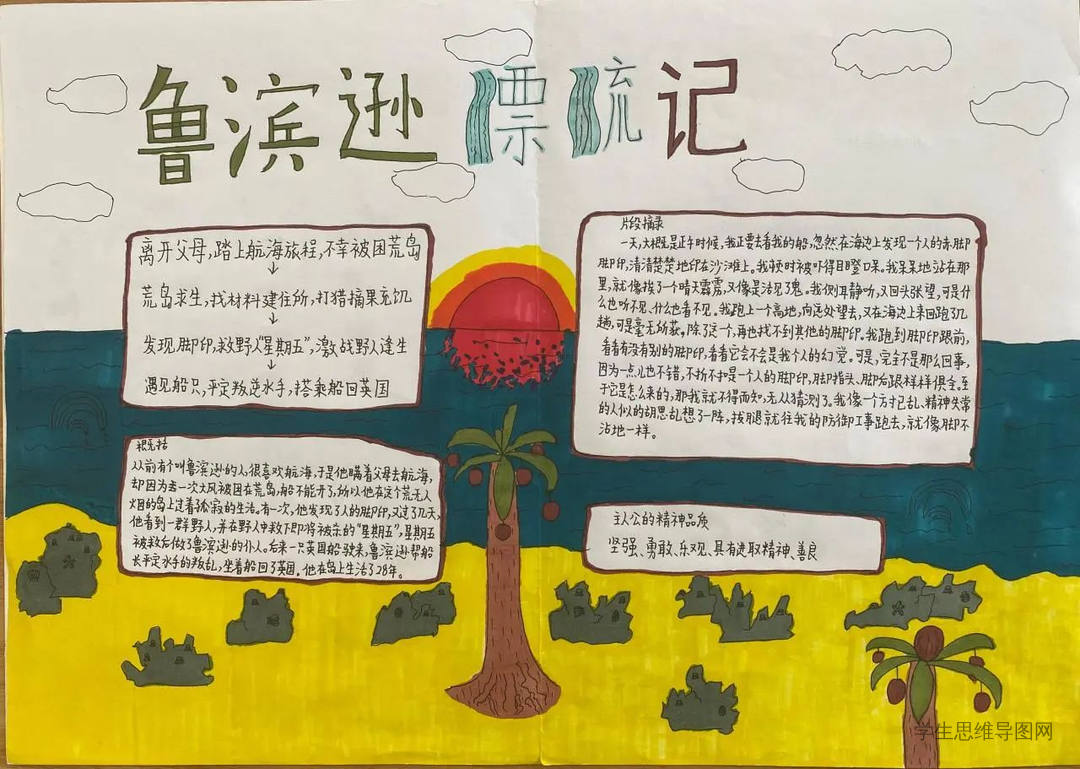 鲁滨逊漂流记
离开父母,踏上航海旅程,不幸被困荒岛
↓
荒岛求生,找材料建住所,打猎摘果充饥
↓
发现脚印,救野人“星期五”,激战野人逢生
↓
遇见船只,平定叛逆水手,搭乘船回英国
概括
从前有个叫鲁滨逊的人,很喜欢航海,于是他瞒着父母去航海,
却因为去一次大风被困在荒岛,船不能开了,所以他在这个荒无人
烟的岛上过着孤寂的生活。有一次,他发现了人的脚印,又过了几天,
他看到一群野人,并在野人中救下即将被杀的“星期五”,星期五
被救后做了鲁滨逊的仆人。后来一只英国船驶来,鲁滨逊帮船
长平定水手的叛乱,坐着船回了英国。他在岛上生活了28年。
片段摘录
一天,大概是正午时候,我正要去看我的船,忽然,在海边上发现一个人的赤脚
脚印,清清楚楚地印在沙滩上。我顿时被吓得目瞪口呆。我呆呆地站在那
里,就像挨了一个晴天霹雳,又像是活见了鬼。我侧耳静听,又回头张望,可是什
么也听不见,什么也看不见。我跑上一个高地,向远处望去,又在海边上来回跑了几
趟,可是毫无所获。除了这一个,再也找不到其他的脚印。我跑到脚印跟前,
看看有没有别的脚印,看看它会不会是我个人的幻觉。可是,完全不是那么回事,
因为一点儿也不错,不折不扣是一个人的脚印,脚指头、脚后跟样样俱全。至
于它是怎么来的,那我就不得而知,无从猜测了。我像一个方寸已乱、精神失常
的人似的胡思乱想了一阵,拔腿就往我的防御工事跑去,就像脚不
沾地一样。
主人公的精神品质
坚强、勇敢、乐观、具有进取精神、善良
学生思维导图网